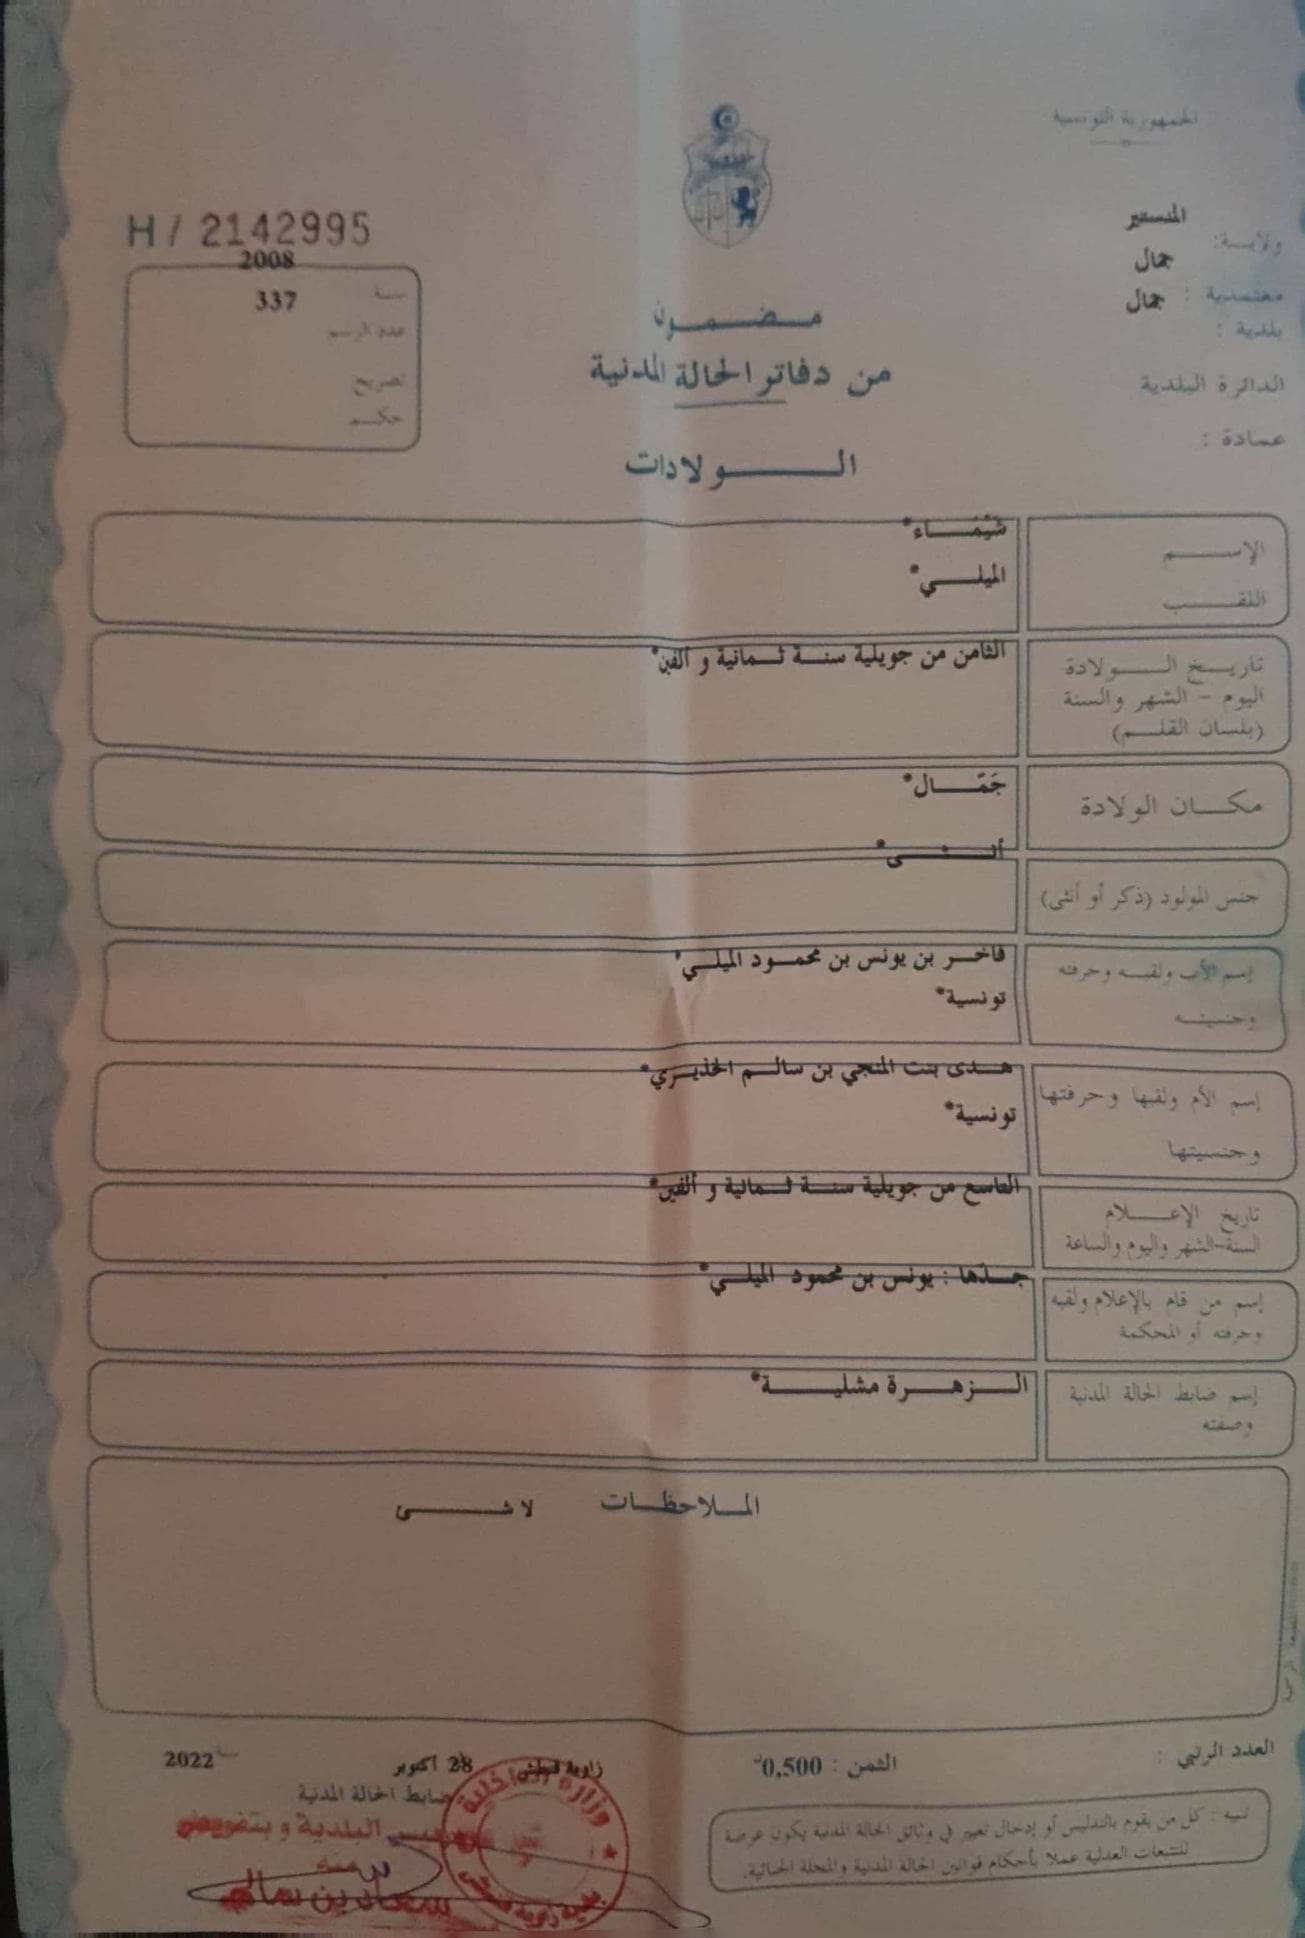 الجمهورية التونسية
H / 2142995
ولايـة: المنستير
معتمدية : جمال
بلدية : جمال
الدائرة البلدية
عمادة :
سنة 2008
عدد الرسم 337
تصريح
حكم
مضمون
من دفاتر الحالة المدنية
الولادات
الإسم شيماء*
اللقب الميلي*
تاريخ الولادة
اليوم – الشهر والسنة
(بلسان القلم)
الثامن من جويلية سنة ثمانية و ألفين*
مكان الولادة جَمّال*
جنس المولود (ذكر أو أنثى) أنثى*
إسم الأب ولقبه وحرفته
وجنسيته
فاخر بن يونس بن محمود الميلي*
تونسية*
إسم الأم ولقبها وحرفتها
وجنسيتها
هدى بنت المنجي بن سالم الخذيري*
تونسية*
تاريخ الإعلام
السنة-الشهر واليوم والساعة
التاسع من جويلية سنة ثمانية و ألفين*
إسم من قام بالإعلام ولقبه
وحرفته أو المحكمة
جدّها : يونس بن محمود الميلي*
إسم ضابط الحالة المدنية
وصفته
الزهرة مشلية*
الملاحظات لا شئ
العدد الرتبي :
الثمن : 0,500د
زاوية قنطش 28 أكتوبر سنة 2022
ضابط الحالة المدنية
رئيس البلدية وبتفويض
منه
سعاد بن سالم
وزارة الداخلية
بلدية زاوية قنطش
تنبيه : كل من يقوم بالتدليس أو إدخال تغيير في وثائق الحالة المدنية يكون عرضة
للتتبعات العدلية عملا بأحكام قوانين الحالة المدنية والمجلة الجنائية.